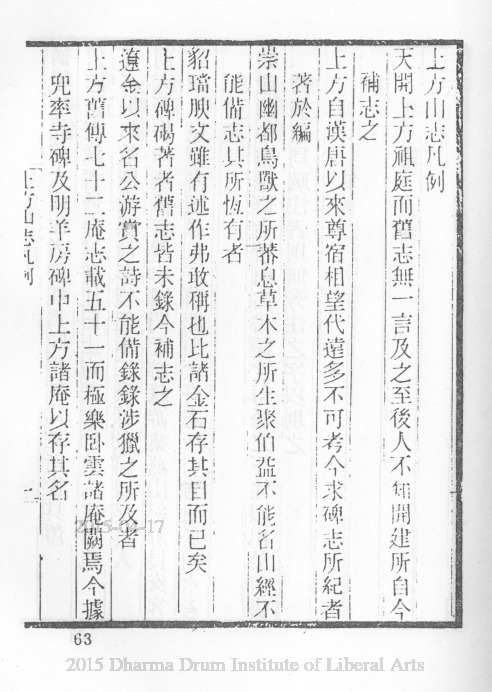 上方山志凡例
天開上方祖庭而舊志無一言及之至後人不知開建所自今
補志之
上方自漢唐以來尊宿相望代遠多不可考今求碑志所紀者
著於編
崇山幽都鳥獸之所蕃息草木之所生聚伯益不能名山經不
能備志其所恆有者
貂璫腴文雖有述作弗敢稱也比諸金石存其目而已矣
上方碑碣著者舊志皆未錄今補志之
遼金以來名公游賞之詩不能備錄錄涉獵之所及者
上方舊傳七十二庵志載五十一而極樂臥雲諸庵闕焉今據
兜率寺碑及明羊房碑中上方諸庵以存其名
上方山志凡例
一
63
2015 Dharma Drum Institute of Liberal Arts